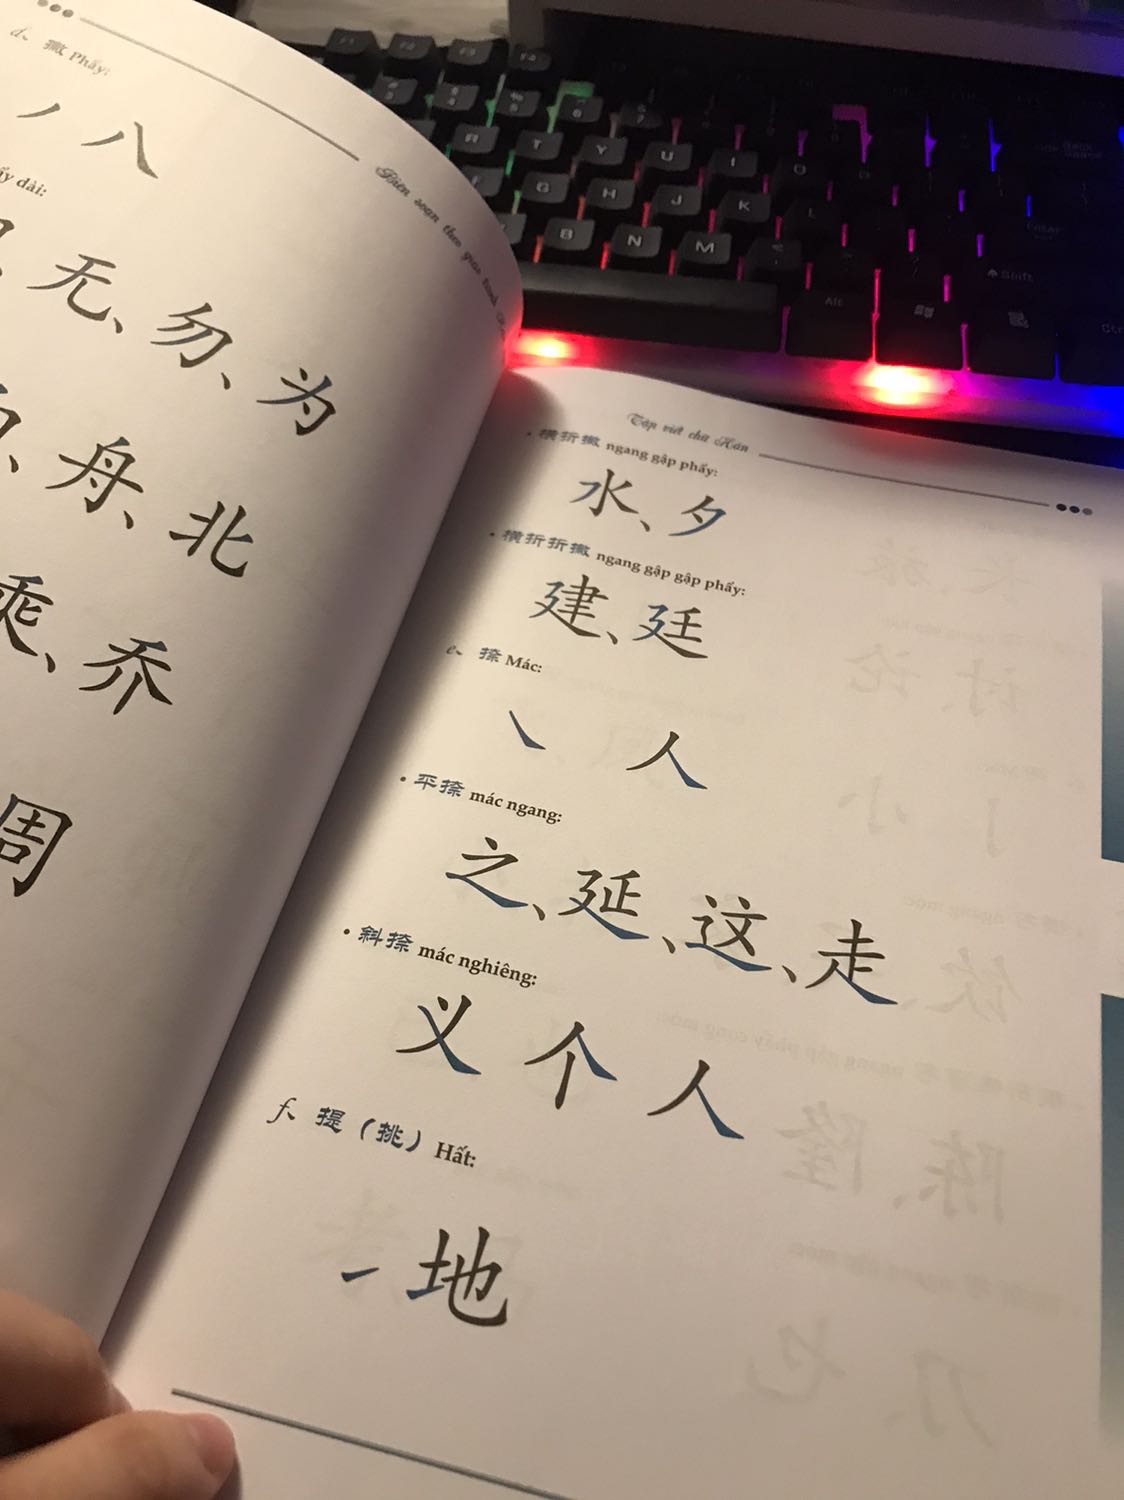 d、撇 Phẩy:
丿 八
ẩy dài:
无、勿、为
舟、北
乘、乔
周
Biên soạn theo giáo trình
Tập viết chữ Hán
• 横折撇 ngang gập phẩy:
水、夕
• 横折折撇 ngang gập gập phẩy:
建、廷
e、捺 Mác:
㇏ 人
• 平捺 mác ngang:
之、延、这、走
• 斜捺 mác nghiêng:
义 个 人
f、提（挑）Hất:
㇀ 地
R T Y U I O
G H J K L
B N M
Alt
Shift
Enter